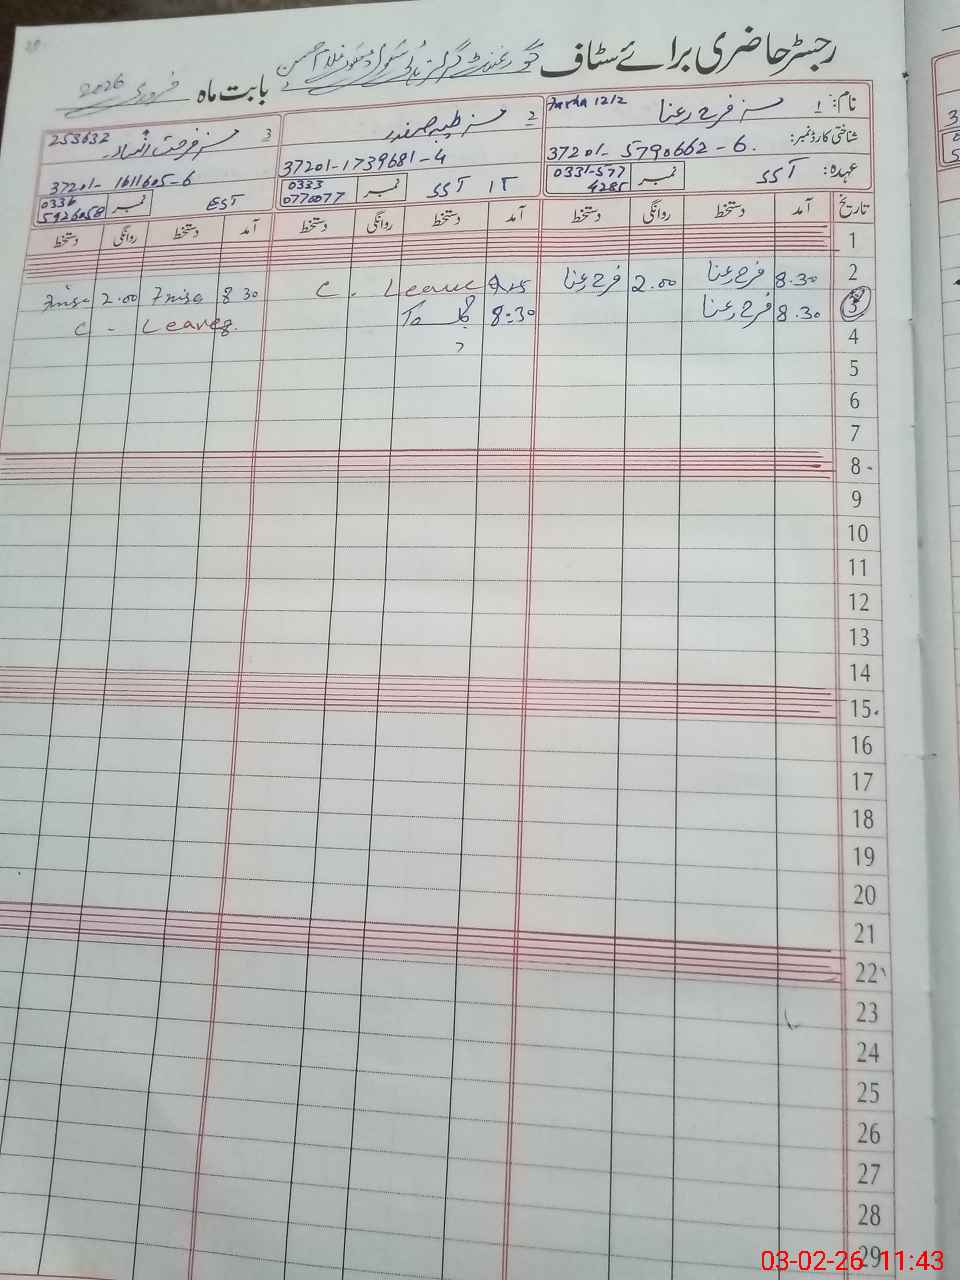 رجسٹر حاضری برائے سٹاف گورنمنٹ گرلز ہائی سکول
بابت ماہ فروری 2026
نام: 1 مسز فرح رعنا Farha 1212
شناختی کارڈ نمبر: 37201- 5790662-6.
عہدہ: SST نمبر 0331-577 4285
2 مسز طیبہ صفدر
37201-1739681-4
SST IT نمبر 0333 0770077
3 مسز فرحت 253632
37201- 1611605-6
EST نمبر 0336 5926058
تاریخ آمد دستخط روانگی دستخط آمد دستخط روانگی دستخط آمد دستخط روانگی دستخط
1
2 8.30 فرح رعنا 2.00 فرح رعنا Leave C. 8 30 2.00
3 8.30 فرح رعنا 8:30 Leave - C
4
5
6
7
8
9
10
11
12
13
14
15
16
17
18
19
20
21
22
23
24
25
26
27
28
29
03-02-26 11:43